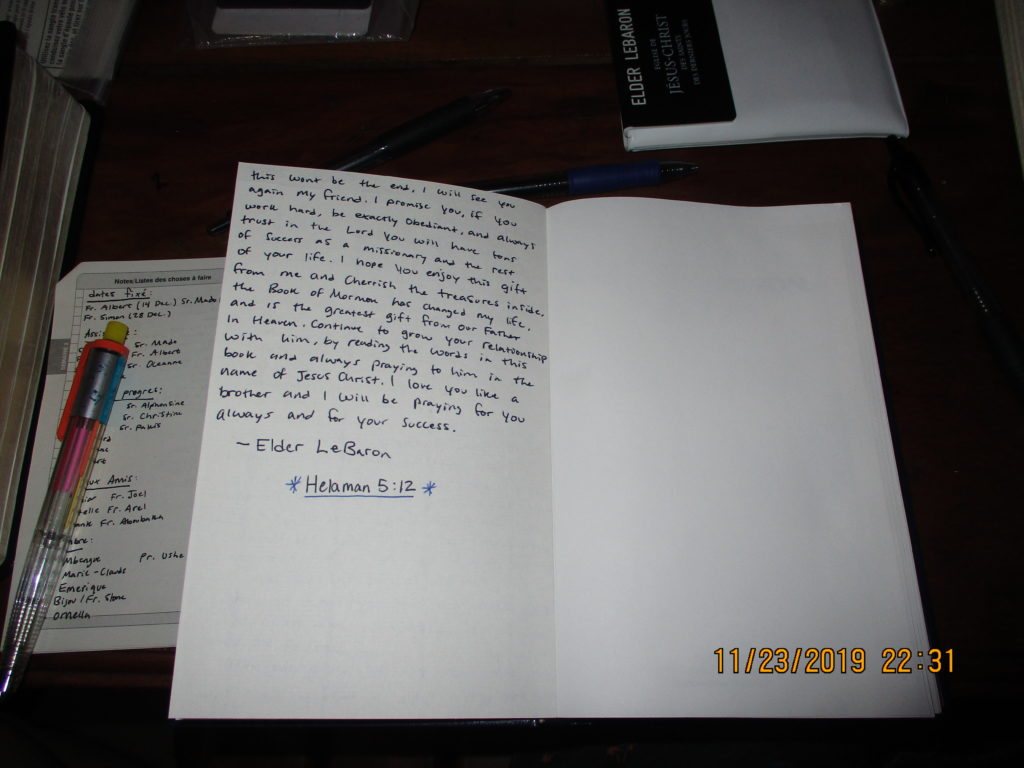 ELDER LEBARON
ÉGLISE DE
JÉSUS-CHRIST
DES SAINTS
DES DERNIERS JOURS
this wont be the end, I will see you
again my friend. I promise you, if you
work hard, be exactly obediant, and always
trust in the Lord you will have tons
of success as a missionary and the rest
of your life. I hope you enjoy this gift
from me and Cherrish the treasures inside,
the Book of Mormon has changed my life,
and is the greatest gift from our Father
in Heaven. Continue to grow your relationship
with him, by reading the words in this
book and always praying to him in the
name of Jesus Christ. I love you like a
brother and I will be praying for you
always and for your success.
- Elder LeBaron
* Helaman 5:12 *
Notes/Listes des choses à faire
dates fixé:
Fr. Albert (14 Dec.) Sr. Mado
Fr. Simon (28 Dec.)
Sr. Mado
Fr. Albert
Sr. Oceanne
progres:
Sr. Alphonsine
Sr. Christine
Amis:
Fr. Joel
Fr. Arel
Fr. Aboubakar
Mbengue Pr. Ushe
Marie-Claude
Emerique
Bijou/Fr. Stone
Ornella
11/23/2019 22:31